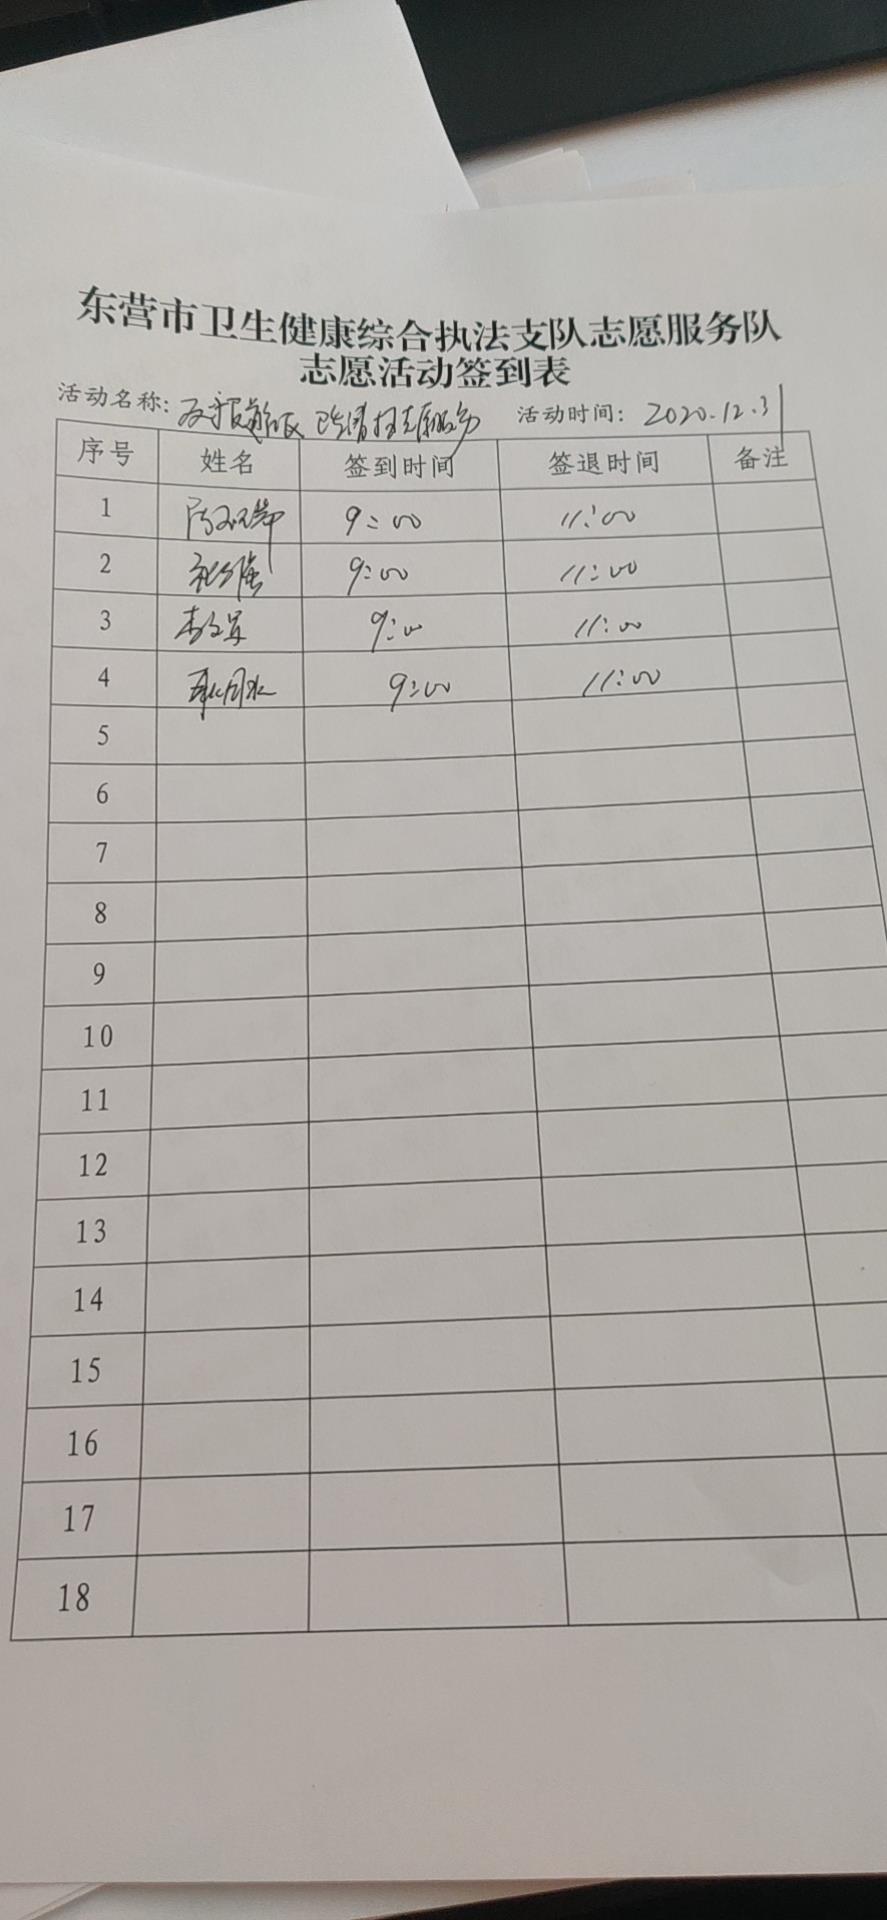 东营市卫生健康综合执法支队志愿服务队
志愿活动签到表
活动名称: 双报到 志愿服务 活动时间: 2020.12.31
序号 姓名 签到时间 签退时间 备注
1 9:00 11:00
2 9:00 11:00
3 9:00 11:00
4 9:00 11:00
5
6
7
8
9
10
11
12
13
14
15
16
17
18